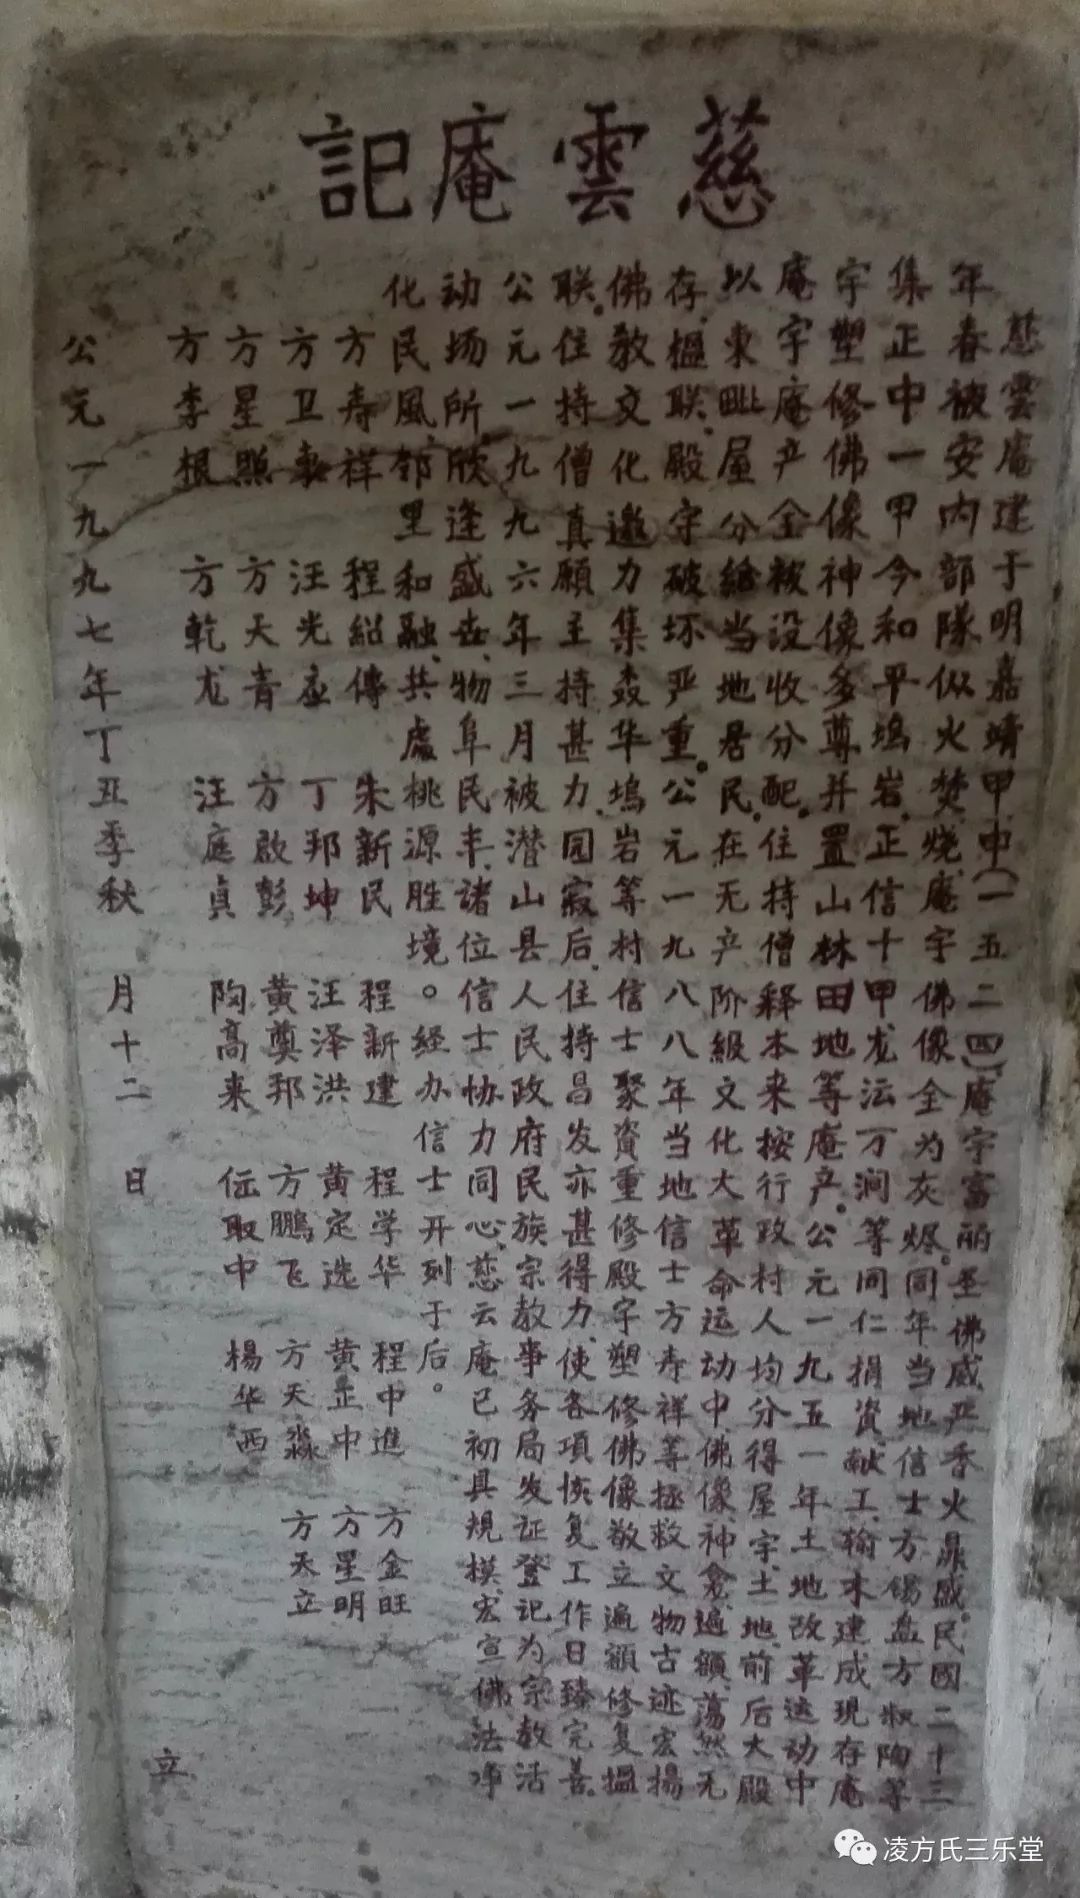 慈雲庵記
慈雲庵建于明嘉靖甲申(一五二四)庵宇富丽圣佛威严香火鼎盛。民國二十三
年春被安内部隊似火焚烧、庵宇佛像全为灰烬。同年当地信士方锡盘方淑陶等
集正中一甲今和平塢岩、正信十甲龙沄万涧等同仁捐資、献工、輸木建成現存庵
宇塑修佛像神像多尊并置山林田地等庵产。公元一九五一年土地改革运动中
庵宇庵产全被没收分配。住持僧释本来按行政村人均分得屋宇、土地、前后大殿
以東毗屋分給当地居民。在无产阶级文化大革命运动中、佛像、神龛、遍額、荡然无
存、楹联、殿宇破坏严重。公元一九八八年当地信士方寿祥等拯救文物古迹宏揚
佛教文化邀力集森华塢岩等村信士聚資重修殿宇塑修佛像敬立遍額修复楹
联。住持僧真願主持甚力、园寂后、住持昌发亦甚得力、使各項恢复工作日臻完善。
公元一九九六年三月被潜山县人民政府民族宗教事务局发证登记为宗教活
动场所、欣逢盛世、物阜民丰、諸位信士协力同心、慈云庵已初具規模、宏宣佛法净
化民風邻里和融、共處桃源胜境。经办信士开列于后。
方寿祥 程紹傳 朱新民 程新建 程学华 程中進 方金旺
方卫東 汪光应 丁邦坤 汪泽洪 黄定选 黄正中 方星明
方星照 方天青 方啟彭 黄奠邦 方鵬飞 方天淼 方天立
方李根 方乾龙 汪庭貞 陶高来 伍取中 楊华西
公元一九九七年丁丑季秋月十二日 立
凌方氏三乐堂